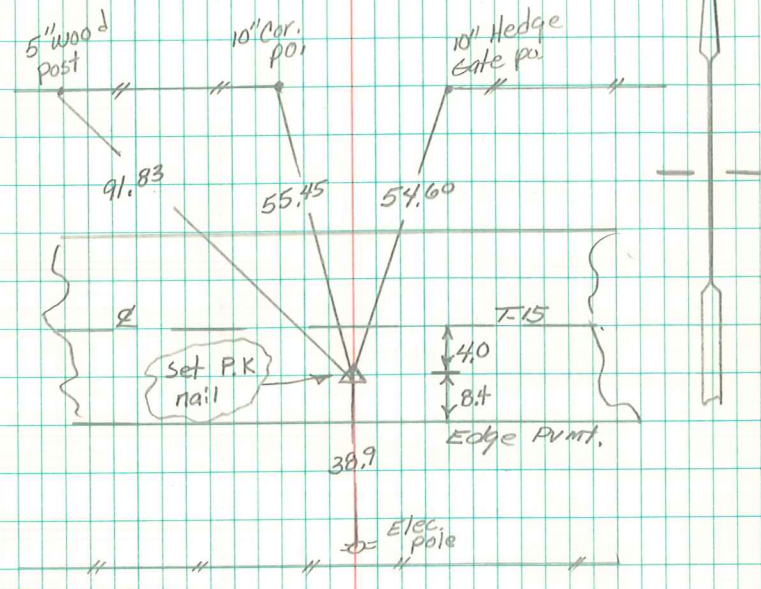 5" wood
post
10" Cor.
po
10" Hedge
Gate po
91.83
55.45
54.60
℄
T-15
Set P.K
nail
4.0
8.4
Edge Pvmt.
38.9
Elec.
pole